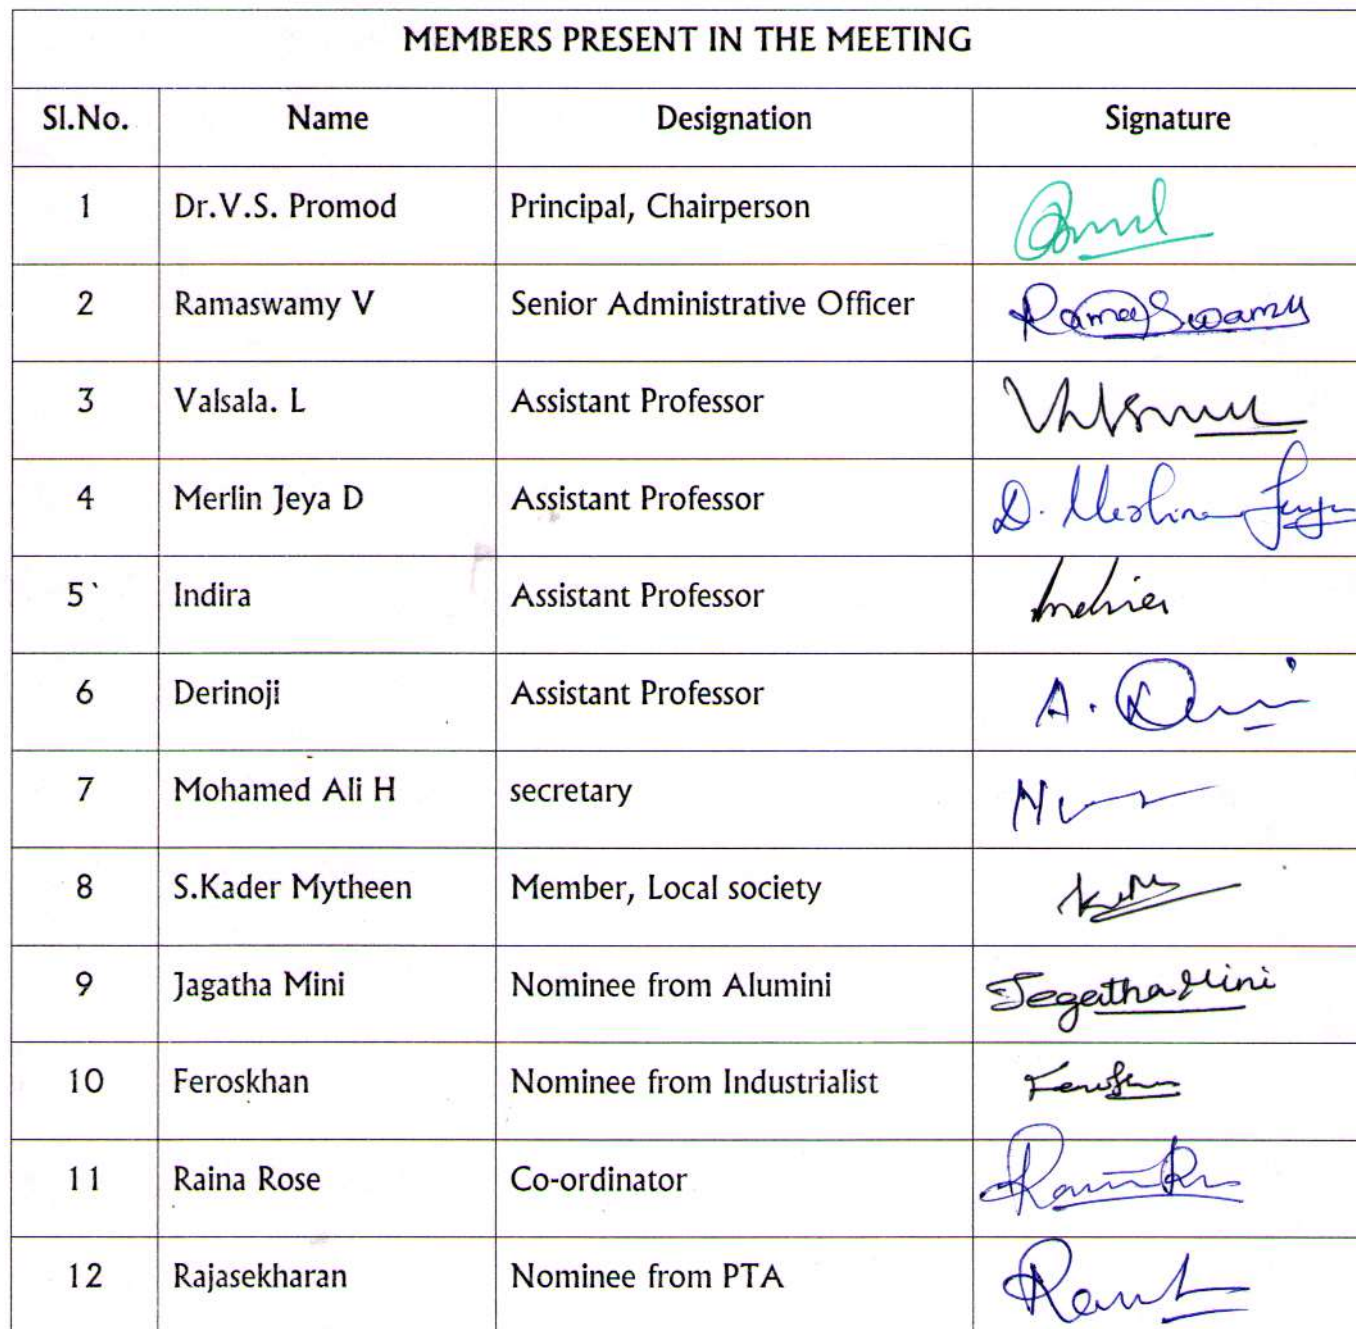 MEMBERS PRESENT IN THE MEETING
Sl.No. Name Designation Signature
1 Dr.V.S. Promod Principal, Chairperson
2 Ramaswamy V Senior Administrative Officer RamaSwamy
3 Valsala. L Assistant Professor
4 Merlin Jeya D Assistant Professor D.
5` Indira Assistant Professor Indira
6 Derinoji Assistant Professor A.
7 Mohamed Ali H secretary
8 S.Kader Mytheen Member, Local society
9 Jagatha Mini Nominee from Alumini Jegatha Mini
10 Feroskhan Nominee from Industrialist
11 Raina Rose Co-ordinator
12 Rajasekharan Nominee from PTA